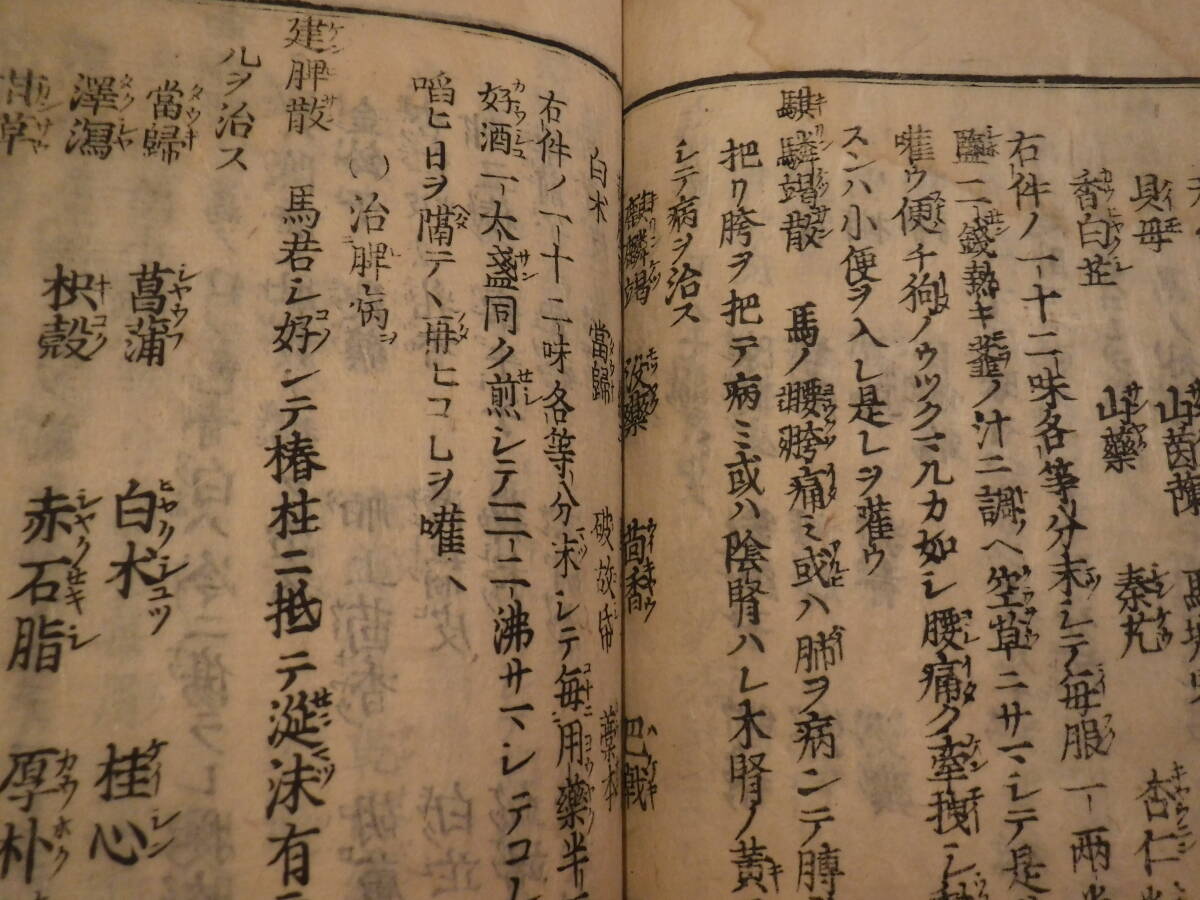 貝母 山茵蔯
香白芷 山藥 秦艽 杏仁
右件ノ一十二味各等分末シテ毎服一兩半
鹽二錢熱キ韮ノ汁ニ調ヘ草ニサマシテ是
嚾ウ便チ狗ノウツクマルカ如シ腰痛ク牽拽シ
スンハ小便ヲ入レ是レヲ嚾ウ
騏驎竭散 馬ノ腰胯痛ミ或ハ肺ヲ病ンテ膊
把リ胯ヲ把テ病ミ或ハ陰腎ハレ木腎ノ黄
シテ病ヲ治ス
麒麟竭 没藥 茴香 巴戟
白朮 當歸 破故帋 藁本
右件ノ一十二味各等分末シテ毎用藥半
好酒一大盞同ク煎シテ三二沸サマシテコレ
㗖ヒ日ヲ隔テヽ再ヒコレヲ嚾ヘ
治脾病
建脾散 馬若シ好ンテ椿柱ニ抵テ涎沫有テ
ルヲ治ス
當歸 菖蒲 白朮 桂心
澤瀉 枳殻 赤石脂 厚朴
甘草